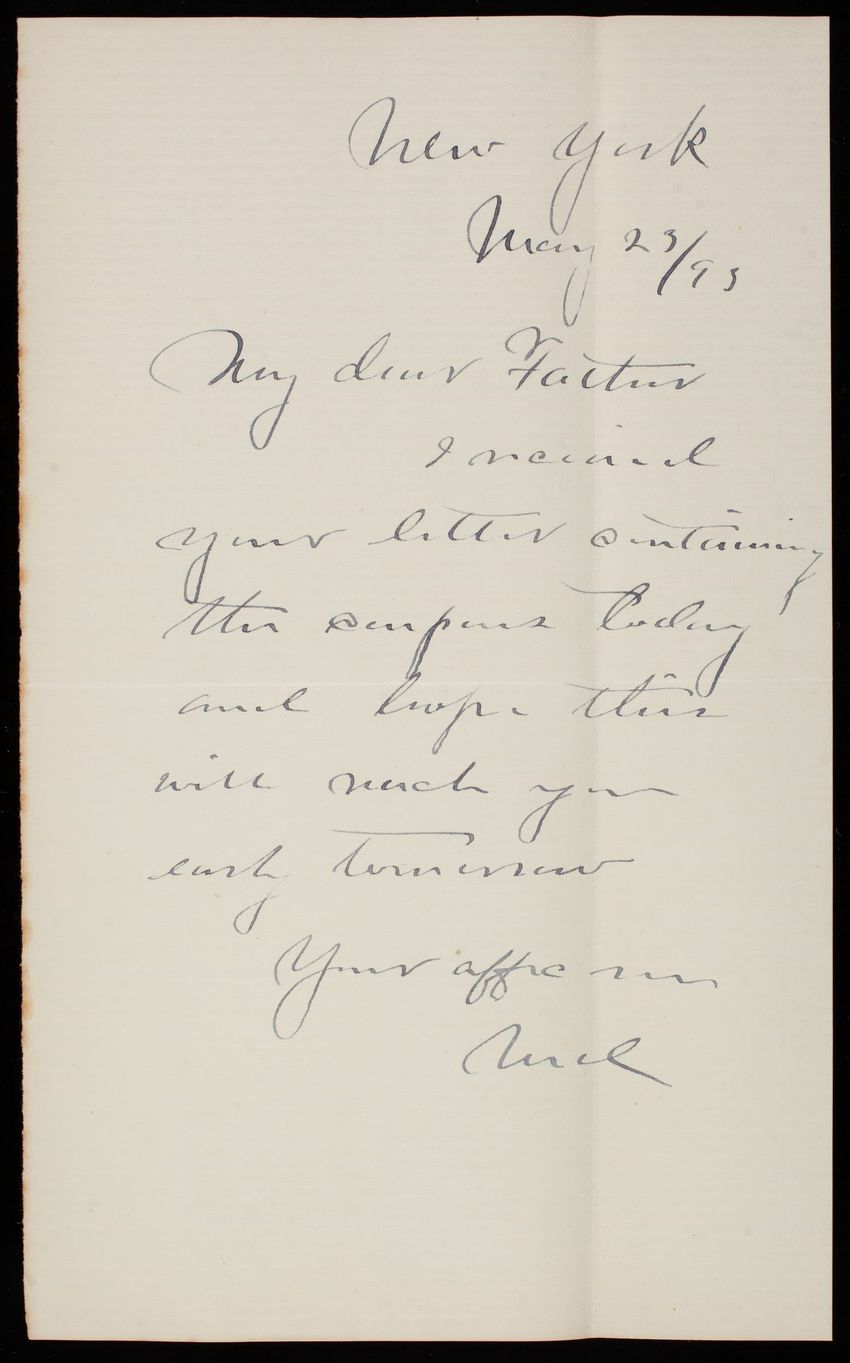 New York
May 23/93
My dear Father
I received
your letter containing
the coupons today
and hope this
will reach you
early tomorrow
Your affec son
Ned